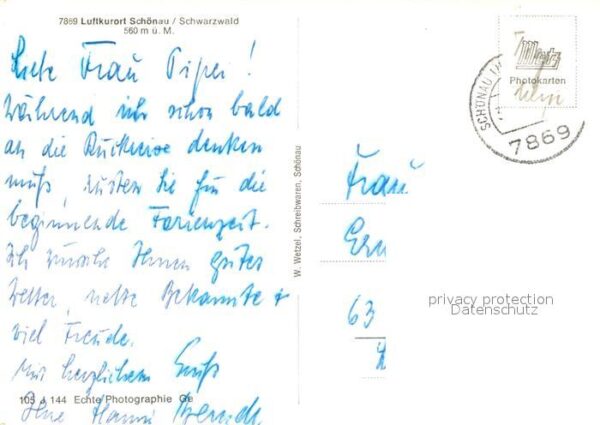 7869 Luftkurort Schönau / Schwarzwald
560 m ü. M.
Liebe Frau Piper!
Während ich schon bald
an die Rückreise denken
muß, rüsten Sie für die
beginnende Ferienzeit.
Ich wünsche Ihnen gutes
Wetter, nette Bekannte +
viel Freude.
Mit herzlichem Gruß
Ihre Hanni
105 J 144 Echte Photographie Ge
W. Wetzel, Schreibwaren, Schönau
Photokarten
SCHÖNAU
7869
Frau
63
privacy protection
Datenschutz